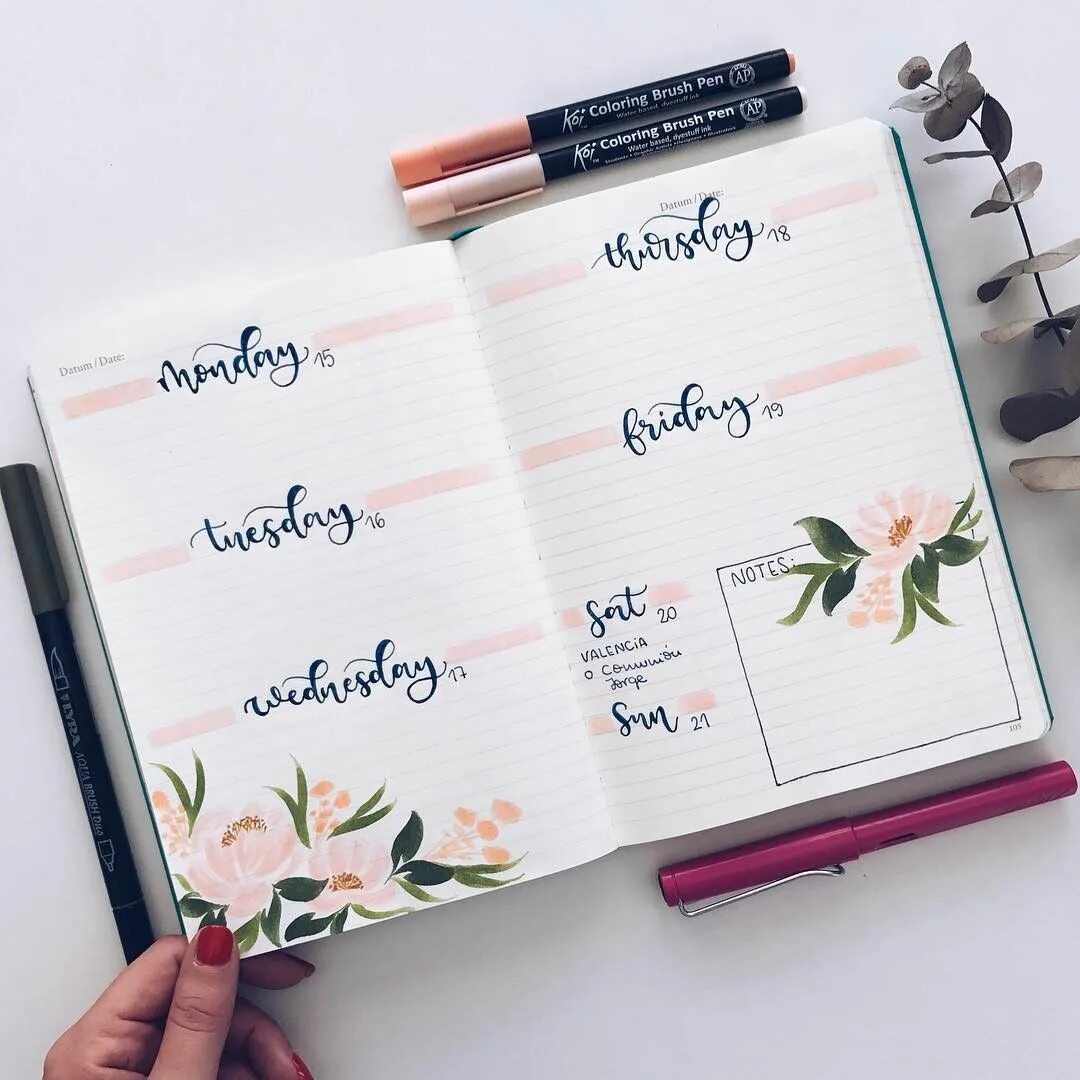 Koi Coloring Brush Pen
Water based, dyestuff ink
AP
Koi Coloring Brush Pen
Water based, dyestuff ink
Students • Graphic Artists • Designers • Illustrators
AP
Datum / Date:
monday 15
tuesday 16
wednesday 17
Datum / Date:
thursday 18
friday 19
Sat 20
VALENCIA
o Comunión
Jorge
Sun 21
NOTES:
105
LYRA AQUA BRUSH DUO